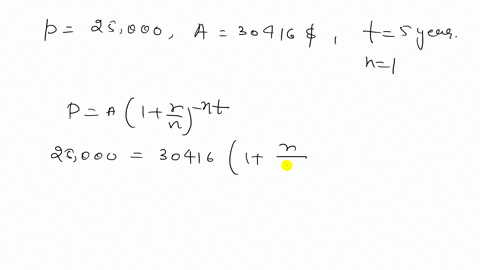 p = 25,000, A = 30416 $, t = 5 year.
n = 1
P = A (1 + r/n)^-nt
25,000 = 30416 (1 + r/